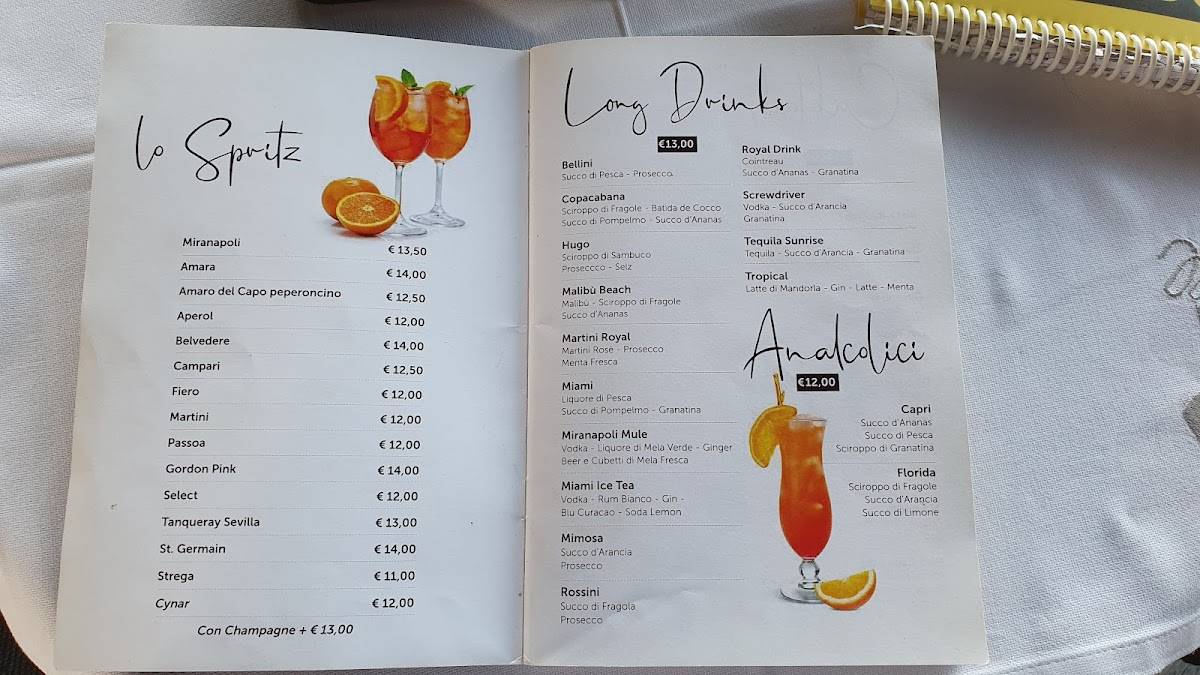 Lo Spritz
Miranapoli € 13,50
Amara € 14,00
Amaro del Capo peperoncino € 12,50
Aperol € 12,00
Belvedere € 14,00
Campari € 12,50
Fiero € 12,00
Martini € 12,00
Passoa € 12,00
Gordon Pink € 14,00
Select € 12,00
Tanqueray Sevilla € 13,00
St. Germain € 14,00
Strega € 11,00
Cynar € 12,00
Con Champagne + € 13,00
Long Drinks
€13,00
Bellini
Succo di Pesca - Prosecco
Copacabana
Sciroppo di Fragole - Batida de Cocco
Succo di Pompelmo - Succo d'Ananas
Hugo
Sciroppo di Sambuco
Proseccco - Selz
Malibù Beach
Malibù - Sciroppo di Fragole
Succo d'Ananas
Martini Royal
Martini Rosè - Prosecco
Menta Fresca
Miami
Liquore di Pesca
Succo di Pompelmo - Granatina
Miranapoli Mule
Vodka - Liquore di Mela Verde - Ginger
Beer e Cubetti di Mela Fresca
Miami Ice Tea
Vodka - Rum Bianco - Gin -
Blu Curacao - Soda Lemon
Mimosa
Succo d'Arancia
Prosecco
Rossini
Succo di Fragola
Prosecco
Royal Drink
Cointreau
Succo d'Ananas - Granatina
Screwdriver
Vodka - Succo d'Arancia
Granatina
Tequila Sunrise
Tequila - Succo d'Arancia - Granatina
Tropical
Latte di Mandorla - Gin - Latte - Menta
Analcolici
€12,00
Capri
Succo d'Ananas
Succo di Pesca
Sciroppo di Granatina
Florida
Sciroppo di Fragole
Succo d'Arancia
Succo di Limone